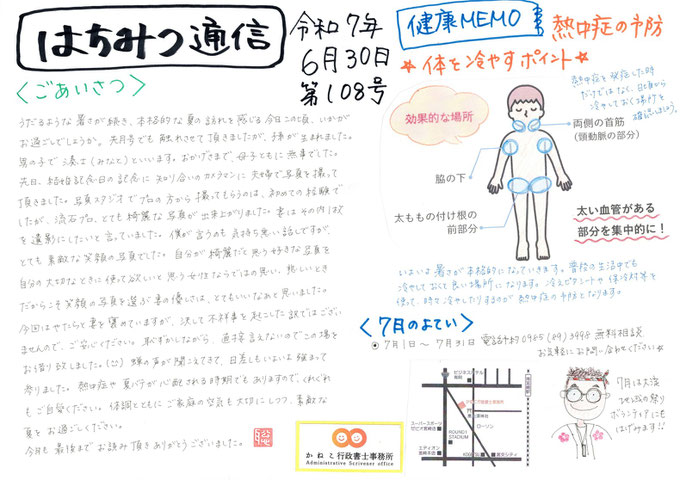 はちみつ通信
令和7年
6月30日
第108号
<ごあいさつ>
うだるような暑さが続き、本格的な夏の訪れを感じる今日この頃、いかが
お過ごしでしょうか。先月号でも触れさせて頂きましたが、子供が生まれました。
男の子で湊士(みなと)といいます。おかげさまで、母子ともに無事でした。
先日、結婚記念日の記念に知り合いのカメラマンに夫婦で写真を撮って
頂きました。写真スタジオでプロの方から撮ってもらうのは、初めての経験で
したが、流石プロ、とても綺麗な写真が出来上がりました。妻はその内1枚
を遺影にしたいと言っていました。僕が言うのも気持ち悪い話しですが、
とても素敵な笑顔の写真でした。自分が綺麗だと思う好きな写真を
自分の大切なときに使って欲しいと思う女性ならではの思い、悲しいとき
だからこそ笑顔の写真を選ぶ妻の優しさは、とてもいいなあと思いました。
今回はやたらと妻を褒めていますが、決して不祥事を起こした訳ではござい
ませんので、ご安心ください。恥ずかしながら、直接言えないのでこの場を
お借り致しました。(^^) 蝉の声が聞こえてき、日差しもいよいよ強まって
参りました。熱中症や夏バテが心配される時期でもありますので、くれぐれ
もご自愛ください。体調とともにご家庭の空気も大切にしつつ、素敵な
夏をお過ごしください。
今月も最後までお読み頂きありがとうございました。
かねこ行政書士事務所
Administrative Scrivener office
健康MEMO
熱中症の予防
☆体を冷やすポイント☆
熱中症を発症した時
だけではなく、日頃から
冷やしておく場所を
確認しましょう。
効果的な場所
両側の首筋
(頸動脈の部分)
脇の下
太ももの付け根の
前部分
太い血管がある
部分を集中的に!
いよいよ暑さが本格的になっていきます。普段の生活中でも
冷やしておくと良い場所になります。冷えピタシートや保冷材等を
使って、時々冷やしたりするのが熱中症の予防となります。
<7月のよてい>
◎7月1日～7月31日 電話
無料相談
お気軽にお問い合わせください☆
ビジネスホテル
かねこ行政書士事務所
ローソン
ROUND1
STADIUM
スーパースポーツ
エディオン
7月は大淀
地域の祭り
ボランティアにも
はげみます!!